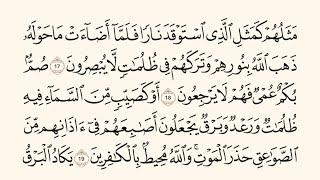 مَثَلُهُمْ كَمَثَلِ ٱلَّذِى ٱسْتَوْقَدَ نَارًا فَلَمَّآ أَضَآءَتْ مَا حَوْلَهُۥ
ذَهَبَ ٱللَّهُ بِنُورِهِمْ وَتَرَكَهُمْ فِى ظُلُمَٰتٍ لَّا يُبْصِرُونَ ١٧ صُمٌّۢ
بُكْمٌ عُمْىٌ فَهُمْ لَا يَرْجِعُونَ ١٨ أَوْ كَصَيِّبٍ مِّنَ ٱلسَّمَآءِ فِيهِ
ظُلُمَٰتٌ وَرَعْدٌ وَبَرْقٌ يَجْعَلُونَ أَصَٰبِعَهُمْ فِىٓ ءَاذَانِهِم مِّنَ
ٱلصَّوَٰعِقِ حَذَرَ ٱلْمَوْتِ ۚ وَٱللَّهُ مُحِيطٌۢ بِٱلْكَٰفِرِينَ ١٩ يَكَادُ ٱلْبَرْقُ